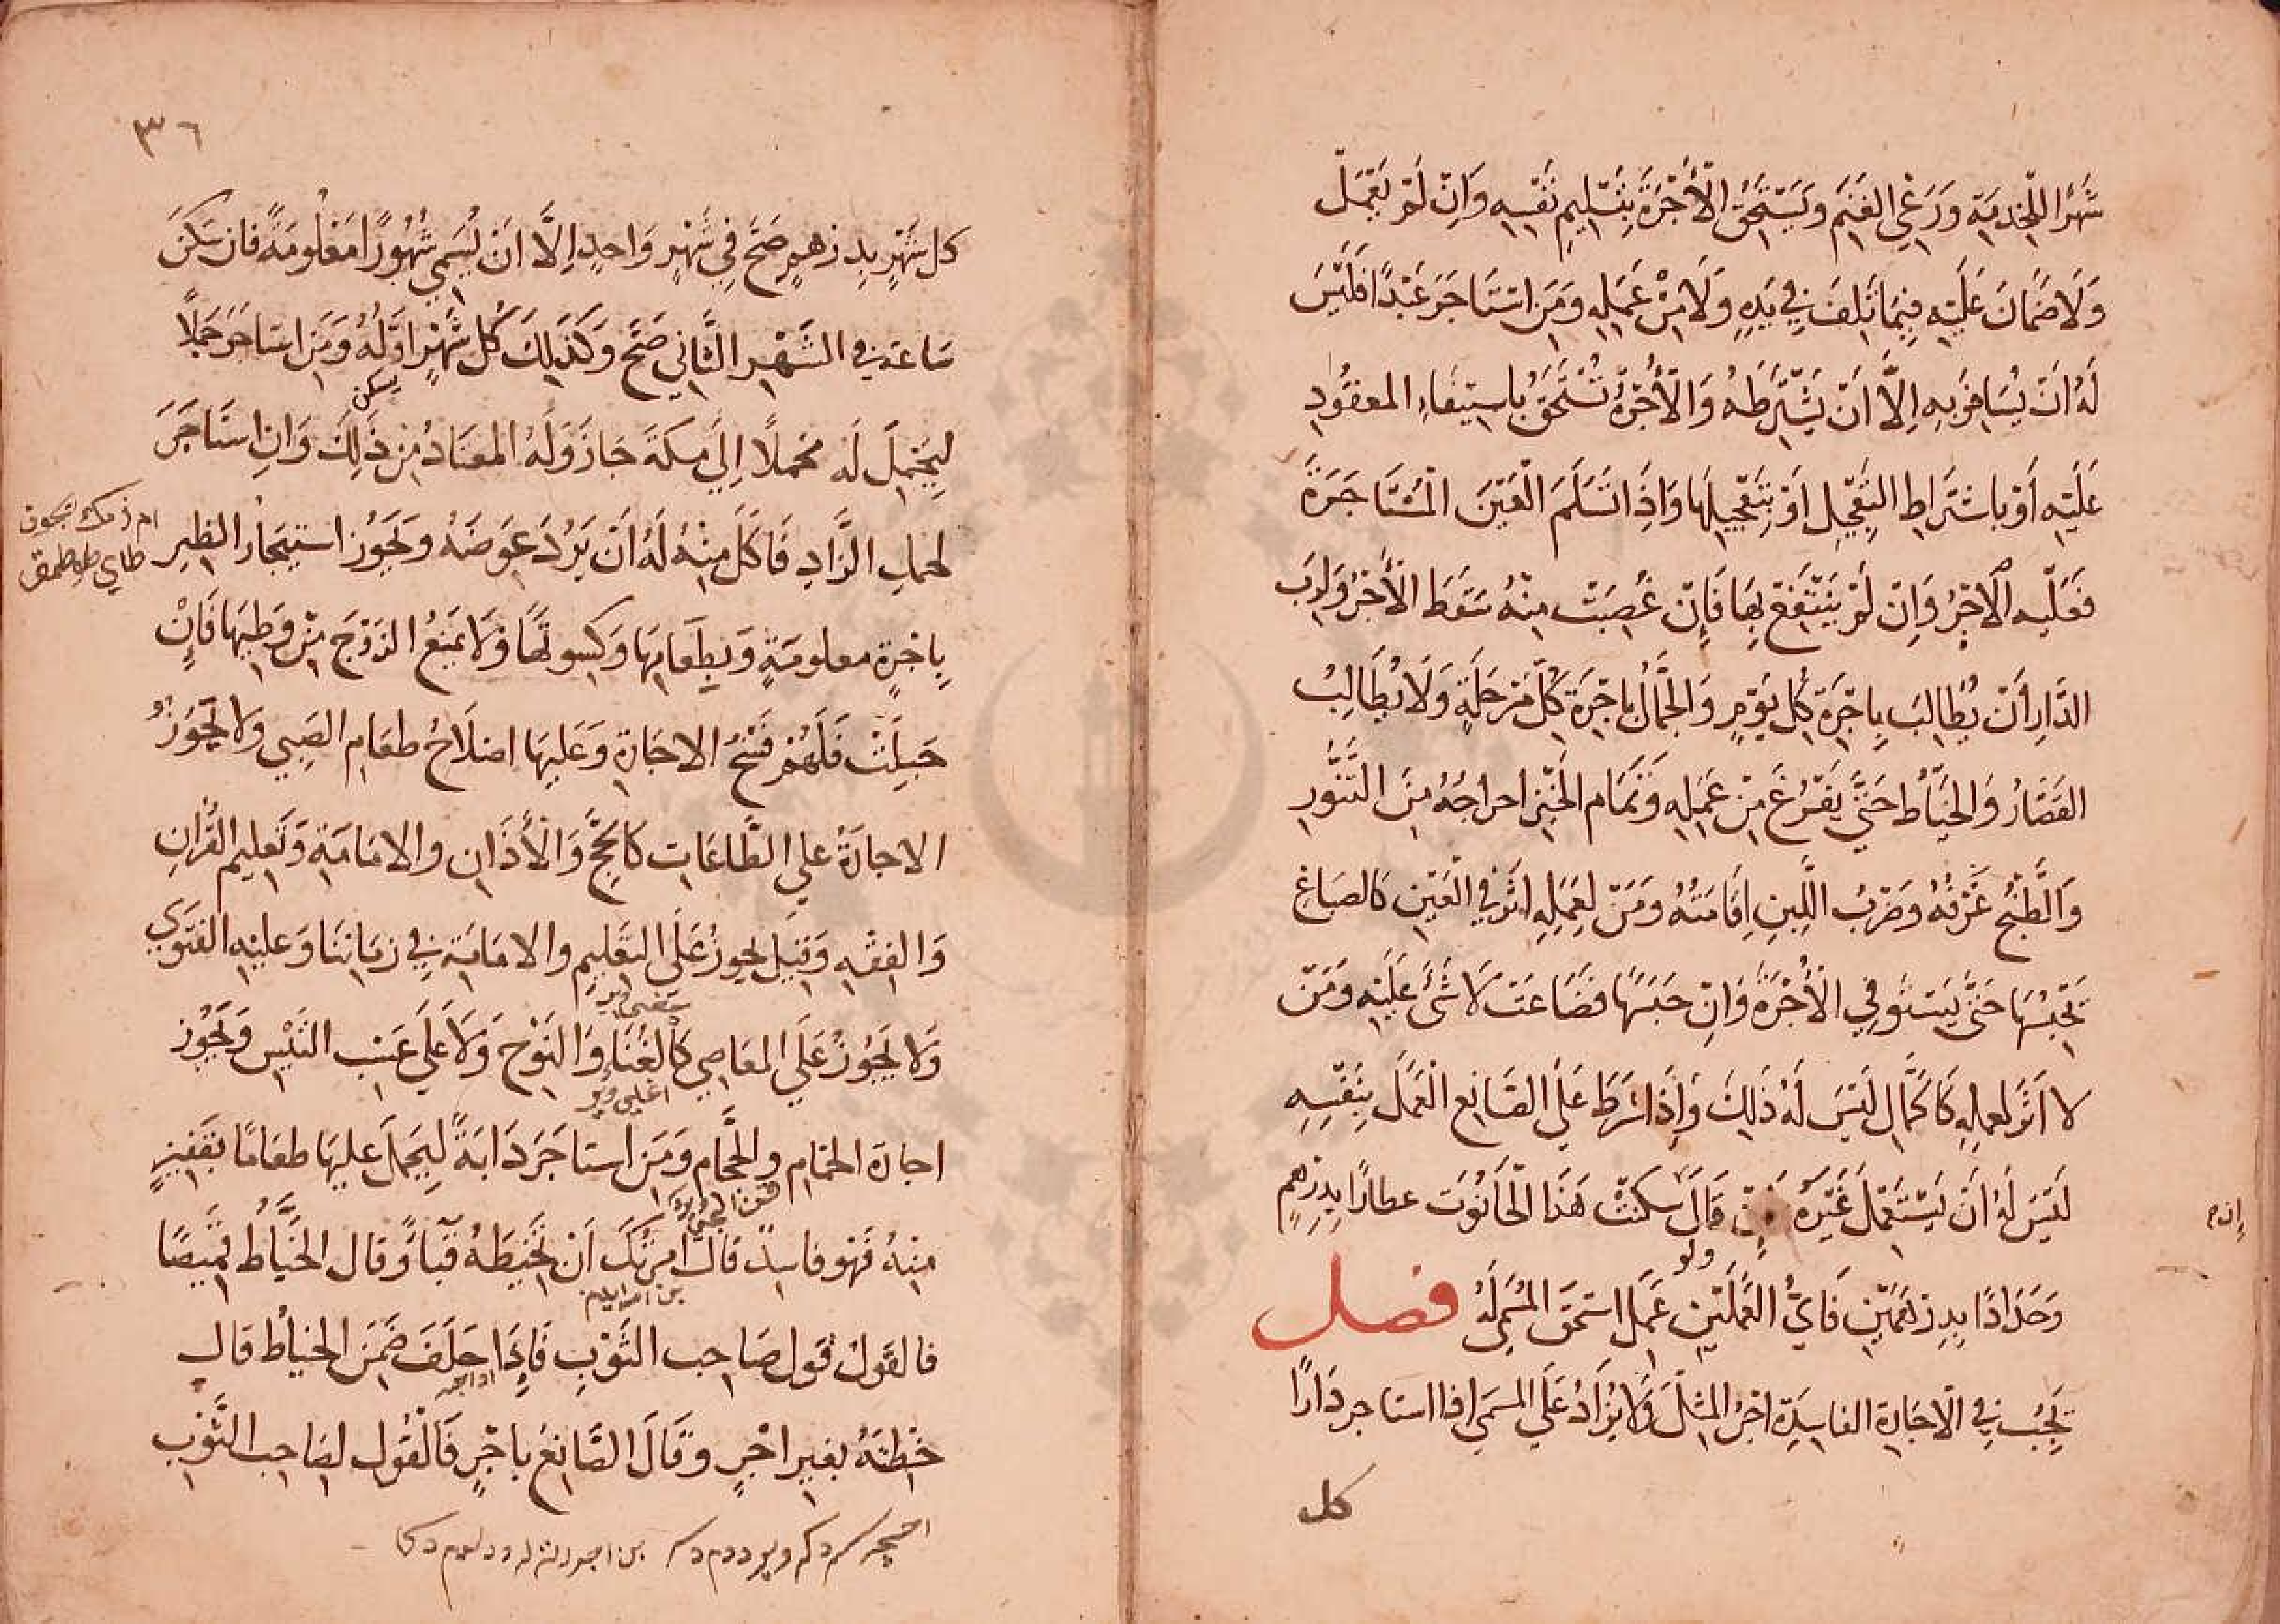 شَهْرًا لِلْخِدمَةِ وَرَعْيِ الغَنَمِ وَيَسْتَحِقُّ الْأُجْرَةَ بِتَسْلِيمِ نَفْسِهِ وَاِنْ لَمْ يَعْمَلْ
وَلَا ضَمَانَ عَلَيْهِ فِيمَا تَلِفَ فِي يَدِهِ وَلَا مِنْ عَمَلِهِ وَمَنِ اسْتَاجَرَ عَبْدًا فَلَيْسَ
لَهُ اَنْ يُسَافِرَ بِهِ اِلَّا اَنْ يَشْتَرِطَهُ وَالْأُجْرَةُ تُسْتَحَقُّ بِاسْتِيفَاءِ المعقُودِ
عَلَيْهِ أَوْ باشتَرَاطِ التَّعْجِيلِ أَوْ بِتَعْجِيلِهَا وَاِذَا تَسَلَّمَ الْعَيْنَ الْمُسْتَاجَرَةَ
فَعَلَيهِ الْاجْرُ وَاِنْ لَمْ يَنْتَفِعْ بِهَا فَاِنْ غُصِبَتْ مِنْهُ سَقَطَ الْأَجْرُ وَلِرَبِّ
الدَّارِ أَنْ يُطَالِبَ بِاجْرَةِ كُلِّ يَوْمٍ وَالْجَمَّالُ بِاجْرَةِ كُلِّ مَرْحَلَةٍ وَلَا يُطَالِبُ
القَصَّارُ وَالخَيَّاطُ حَتَّى يَفْرُغَ مِنْ عَمَلِهِ وَتَمَام الْخُبْزِ اخراجُهُ مِنَ التَّنُّورِ
وَالطَّبْخِ غَرْفُهُ وَضَرْبُ اللَّبِنِ اِقَامَتُهُ وَمَنْ لِعَمَلِهِ اثَرٌ فِي الْعَيْنِ كَالصبَاغِ
يَحْبِسُهَا حَتَّى يَسْتَوفِيَ الْأُجْرَةَ وَاِنْ حَبَسَهَا فَضَاعَتْ لَا شَىْءَ عَلَيْهِ وَمَنْ
لا اَثَرَ لِعملِهِ كَالحَمَّالِ لَيْسَ لَهُ ذَلِكَ وَاِذَا شَرَطَ عَلَى الصَّانِعِ الْعَمَلَ بِنَفْسِهِ
لَيْسَ لَهُ أَنْ يَسْتَعْمِلَ غَيْرَهُ قَالَ سَكَنْتَ هَذَا الْحَانُوتَ عطارًا بِدِرْهَمٍ
ولو
وَحَدَادًا بِدِرْهَمَيْنِ فَايُّ العَمَلَيْنِ عَمِلَ استحَقَّ المُسَمَّى لَهُ فصل
يَجِبُ فِي الْاجَارَةِ الفاسِدَةِ اجْرُ المِثْلِ وَلَا يُزَادُ عَلَى المسَمى اذا استاجر دَارًا
كل
٣٦
كل شَهْرٍ بِدِرْهَمٍ صَحَّ فِي شَهْرٍ وَاحِدٍ اِلَّا اَنْ يُسَمِّيَ شُهُورًا مَعْلُومَةً فان سَكَنَ
سَاعة فِي الشَّهْرِ الثَّانِي صَحَّ وَكَذَلِكَ كُل شَهْرٍ اَوَّلُهُ وَمَنِ استَاجَرَ جَمَلًا
يسكن
لِيَحْمِلَ لَه مَحْمِلًا اِلَى مَكَةَ جَازَ وَلَهُ المعتَادُ مِنْ ذَلِكَ وَانِ استَاجَرَ
لحملِ الزَّادِ فَاَكَلَ مِنْهُ لَهُ اَنْ يَرُدَّ عِوَضَهُ وَيَجُوزُ استيجَارُ الظيرِ
بِاجْرَةٍ معلومَةٍ وَبِطَعَامِهَا وَكِسوتِهَا وَلَا يَمْنَعُ الزَوْجَ مِنْ وَطِيهَا فَاِنْ
حَبِلَتْ فَلَهُمْ فَسْخُ الاجَارَةِ وَعَلَيهَا اصلَاحُ طعَامِ الصَبِي وَلَا يَجُوزُ
الاجارَةُ علي الطَّاعَاتِ كَالحَجِّ وَالْأَذَانِ والامَامَةِ وَتَعْلِيمِ القُرْانِ
وَالفِقْهِ وَقِيلَ يجوزُ عَلَى التَعْلِيمِ والامَامَة فِي زمَانِنَا وَعليْهِ الفَتْوَى
وَلَا يَجُوزُ عَلَي المعَاصِي كَالغُنَاءِ وَالنَوْحِ وَلَا عَلَي عَسْبِ التَيْسِ وَيَجُوز
اجارة الحمَامِ والحَجَّامِ وَمَنِ استاجَرَ دَابَةً لِيَحْمِلَ عليهَا طعَامًا بِقَفِيزٍ
مِنْهُ فَهْو فاسِدٌ قالَ امرْتُكَ اَنْ تُخَيِّطَهُ قَبَاءً وَقال الخَيَّاطُ قَمِيصًا
فالقَولُ قَول صَاحِب الثَوْبِ فَاِذَا حَلَفَ ضَمِنَ الخياطُ قال
خِطْتَهُ بغير اجْرٍ وَقَالَ الصَّانِعُ باجْرٍ فَالْقَول لصَاحِبِ الثَّوْبِ